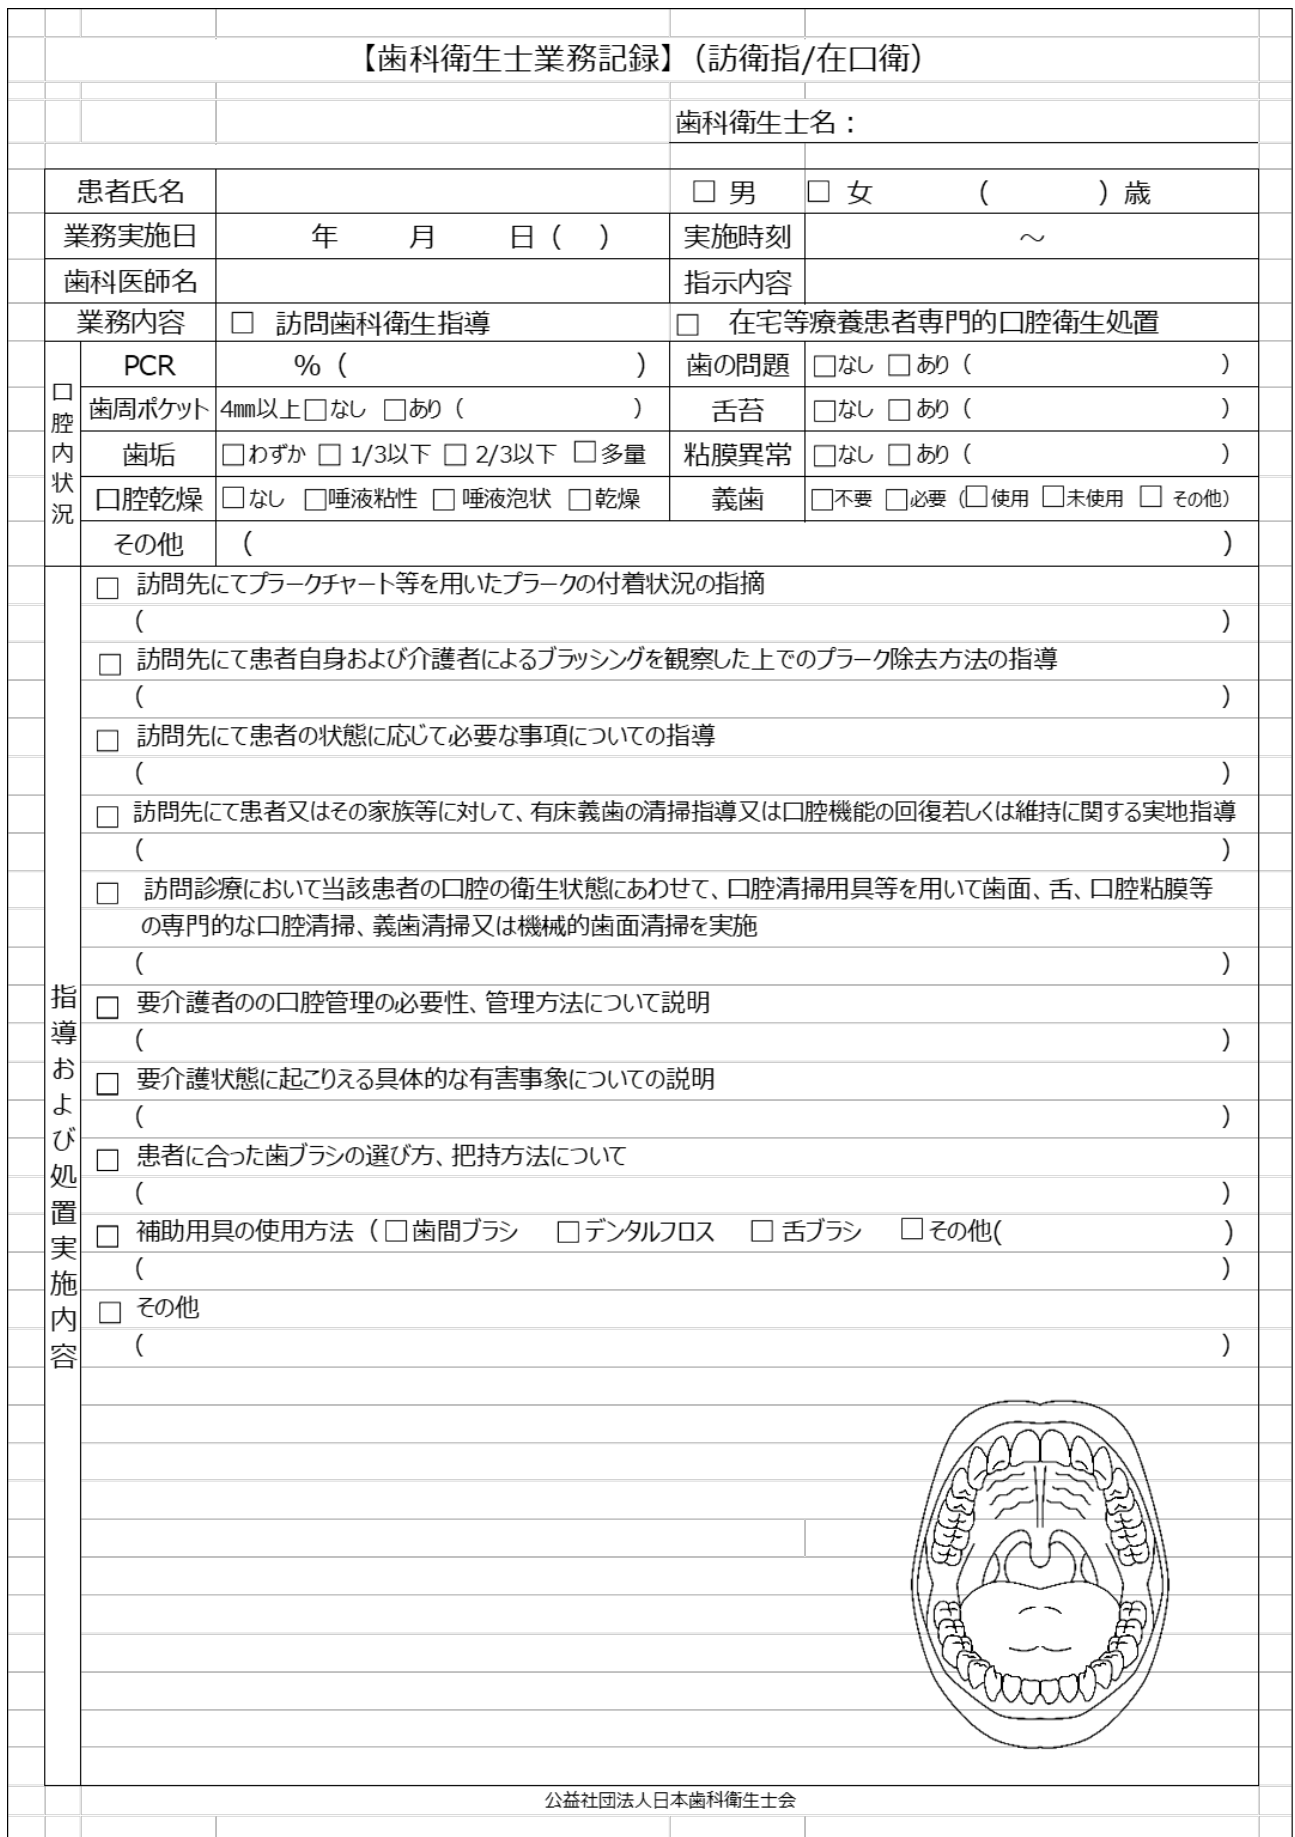 【歯科衛生士業務記録】（訪衛指/在口衛）
歯科衛生士名：
患者氏名 □ 男 □ 女 （ ）歳
業務実施日 年 月 日（ ） 実施時刻 ～
歯科医師名 指示内容
業務内容 □ 訪問歯科衛生指導 □ 在宅等療養患者専門的口腔衛生処置
口腔内状況
PCR %（ ） 歯の問題 □なし □あり（ ）
歯周ポケット 4㎜以上□なし □あり（ ） 舌苔 □なし □あり（ ）
歯垢 □わずか □ 1/3以下 □ 2/3以下 □多量 粘膜異常 □なし □あり（ ）
口腔乾燥 □なし □唾液粘性 □ 唾液泡状 □乾燥 義歯 □不要 □必要（□使用 □未使用 □ その他）
その他 （ ）
指導および処置実施内容
□ 訪問先にてプラークチャート等を用いたプラークの付着状況の指摘
（ ）
□ 訪問先にて患者自身および介護者によるブラッシングを観察した上でのプラーク除去方法の指導
（ ）
□ 訪問先にて患者の状態に応じて必要な事項についての指導
（ ）
□ 訪問先にて患者又はその家族等に対して、有床義歯の清掃指導又は口腔機能の回復若しくは維持に関する実地指導
（ ）
□ 訪問診療において当該患者の口腔の衛生状態にあわせて、口腔清掃用具等を用いて歯面、舌、口腔粘膜等
の専門的な口腔清掃、義歯清掃又は機械的歯面清掃を実施
（ ）
□ 要介護者のの口腔管理の必要性、管理方法について説明
（ ）
□ 要介護状態に起こりえる具体的な有害事象についての説明
（ ）
□ 患者に合った歯ブラシの選び方、把持方法について
（ ）
□ 補助用具の使用方法（□歯間ブラシ □デンタルフロス □ 舌ブラシ □その他( ）
（ ）
□ その他
（ ）
公益社団法人日本歯科衛生士会